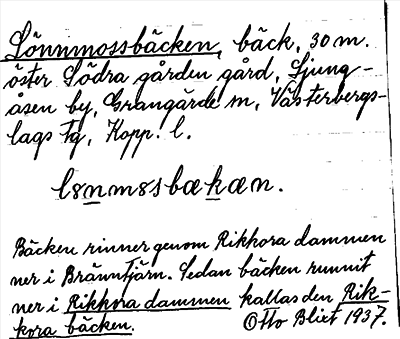 Lönnmossbäcken, bäck, 30 m.
öster Södra gården gård, Ljung-
åsen by, Grangärde sn, Västerbergs-
lags tg, Kopp. l.
lönmósbækæn.
Bäcken rinner genom Rikkora dammen
ner i Bränntjärn. Sedan bäcken runnit
ner i Rikkora dammen kallas den Rik-
kora bäcken.
Otto Blixt 1937.